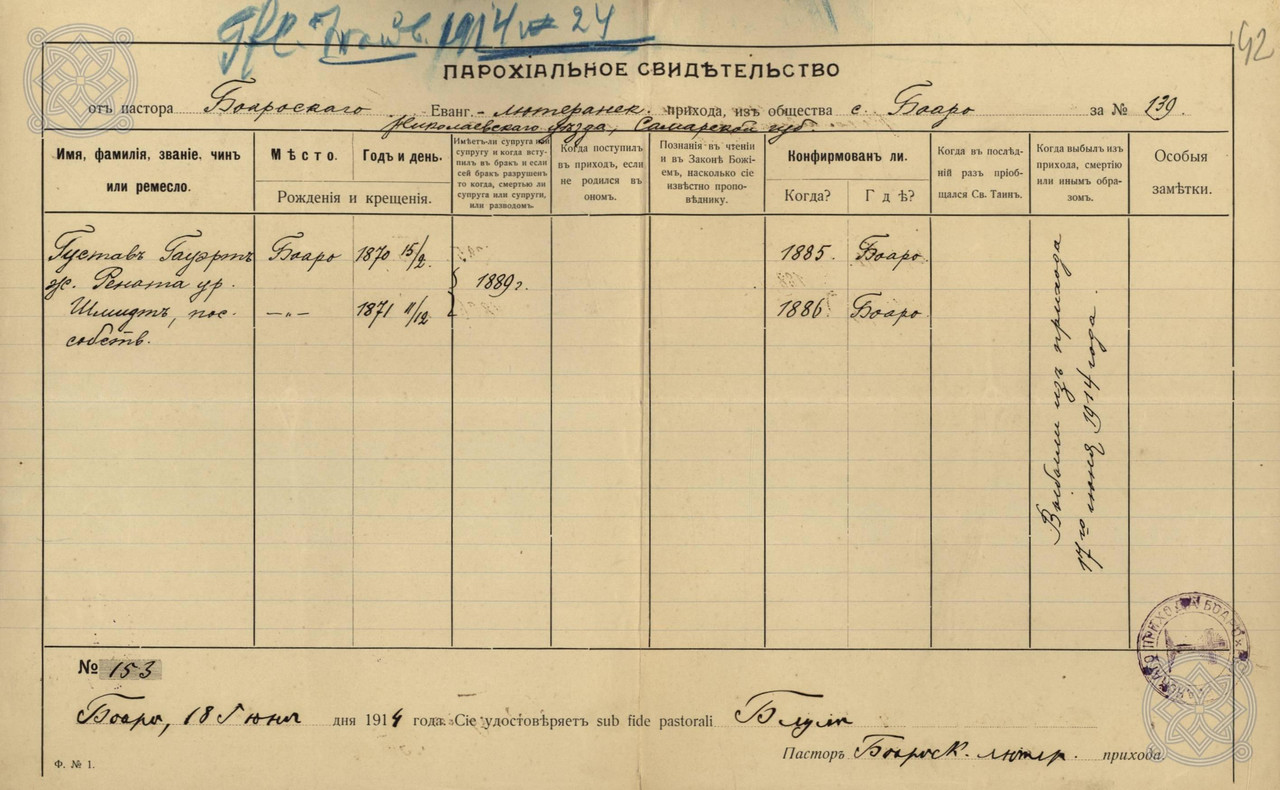 1914 № 24
42
ПАРОХІАЛЬНОЕ СВИДѢТЕЛЬСТВО
отъ пастора Боароскаго Еванг.-лютеранск. прихода, изъ общества с. Боаро за № 139
Николаевскаго уѣзда, Самарской губ.
Имя, фамилія, званіе, чин или ремесло.
Мѣсто. Годъ и день.
Рожденія и крещенія.
Имѣетъ-ли супруга или супругу и когда вступил въ брак и если сей брак разрушен то когда, смертью ли супруга или супруги, или разводом.
Когда поступил въ приход, если не родился въ оном.
Познанія въ чтеніи и въ Законѣ Божіем, насколько сіе извѣстно проповѣднику.
Конфирмован ли.
Когда? Гдѣ?
Когда въ послѣдній раз пріобщался Св. Таинъ.
Когда выбыл изъ прихода, смертію или иным образом.
Особыя замѣтки.
Густавъ Гауэртъ Боаро 1870 15/2. 1885 Боаро
ж. Рената ур. 1889 г.
Шмидтъ, пос. —„— 1871 11/12 1886 Боаро
собств.
Выбыли изъ прихода
17го июня 1914 года.
№ 153
Боаро, 18 июня дня 1914 года. Сіе удостовѣряет sub fide pastorali
Пасторъ Боароск. лютер. прихода.
Ф. № 1.